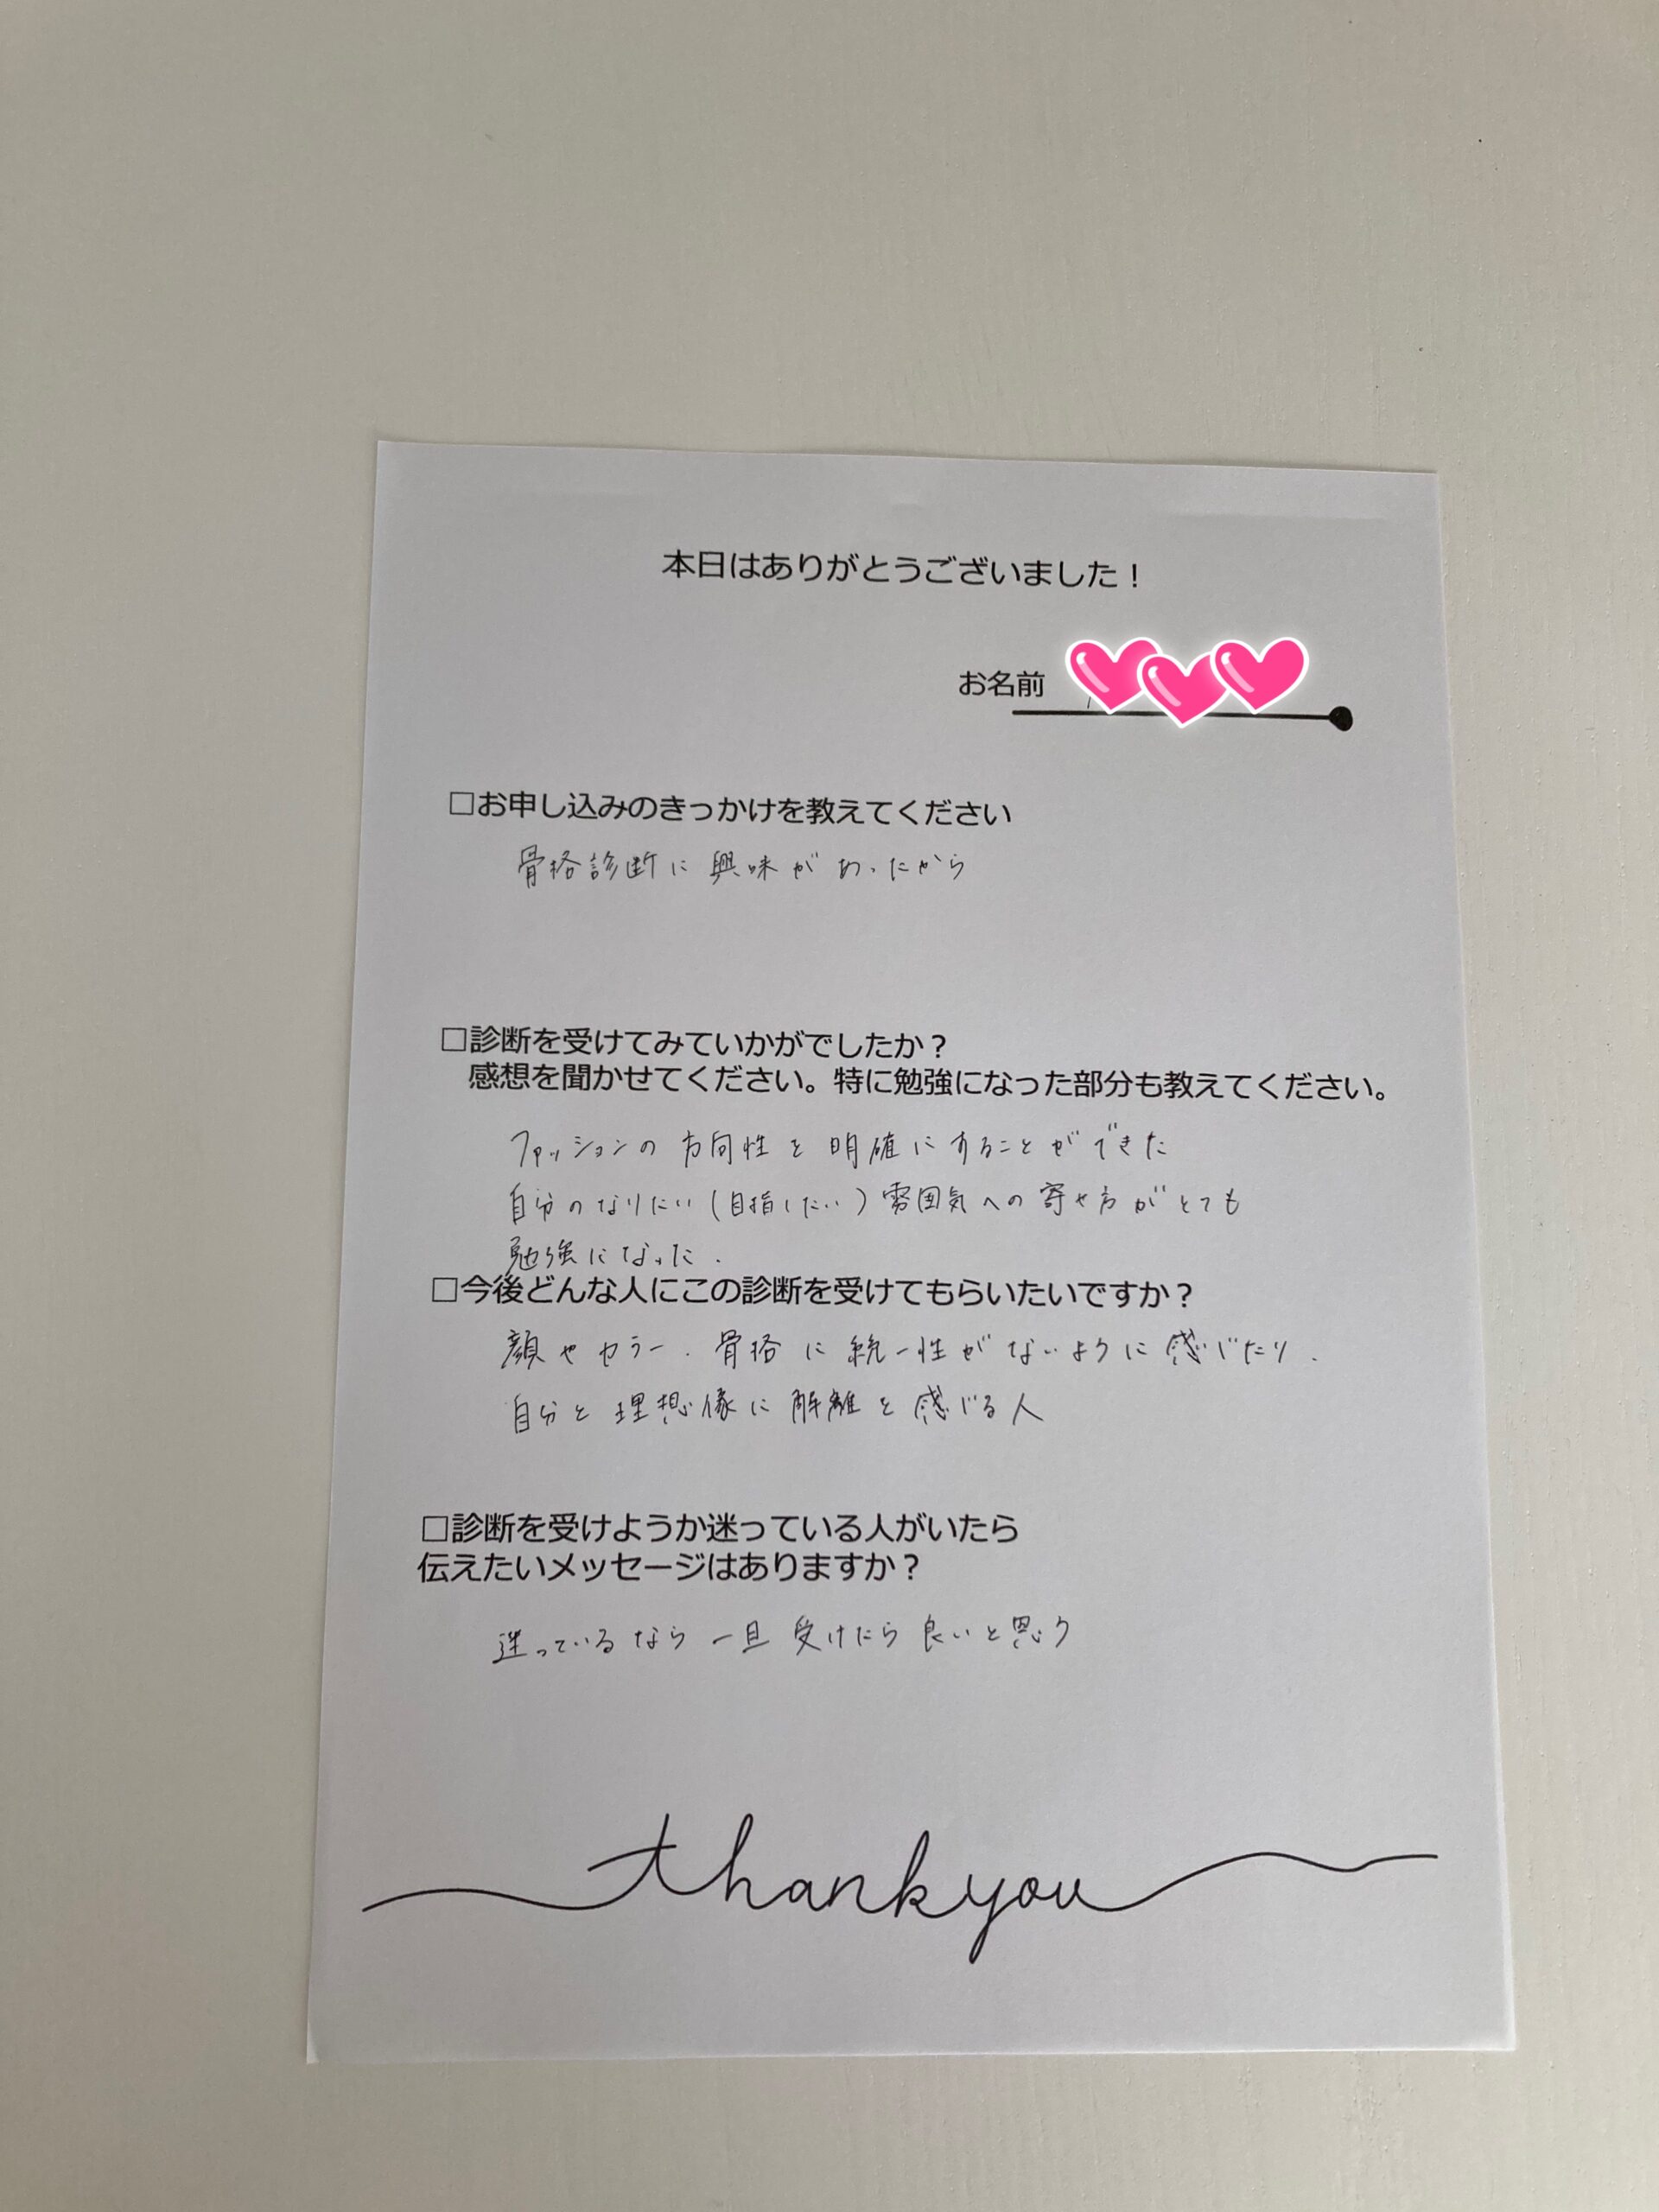 本日はありがとうございました！
お名前
□お申し込みのきっかけを教えてください
骨格診断に興味があったから
□診断を受けてみていかがでしたか？
感想を聞かせてください。特に勉強になった部分も教えてください。
ファッションの方向性を明確にすることができた
自分のなりたい(目指したい)雰囲気への寄せ方がとても
勉強になった.
□今後どんな人にこの診断を受けてもらいたいですか？
顔やカラー、骨格に統一性がないように感じたり、
自分と理想像に解離を感じる人
□診断を受けようか迷っている人がいたら
伝えたいメッセージはありますか？
迷っているなら一旦受けたら良いと思う
thankyou